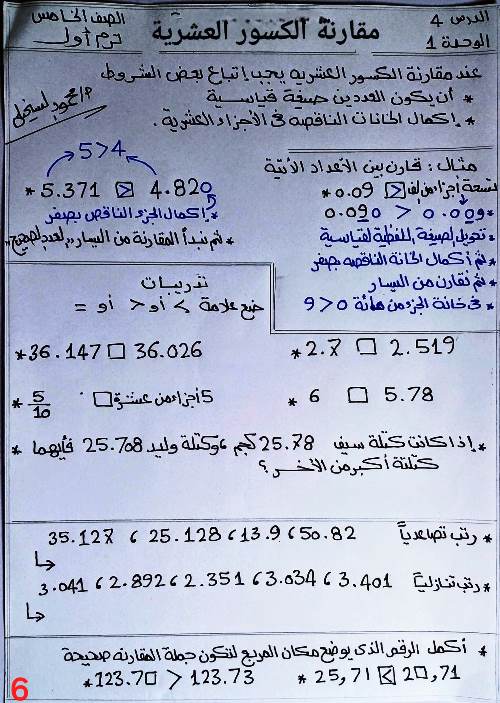 الدرس 4
الوحدة 1
مقارنة الكسور العشرية
الصف الخامس
ترم أول
عند مقارنة الكسور العشرية يجب إتباع بعض الشروط
* أن يكون العددين صيغة قياسية
* إكمال الخانات الناقصه فى الأجزاء العشرية .
مثال : قارن بين الأعداد الأتية
* 0.09 > تسعة أجزاء من ألف
0.090 > 0.009
* تحويل الصيغة اللفظية لقياسية
* ثم أكمال الخانة الناقصه بصفر
* ثم نقارن من اليسار
* فى خانة الجزء من مائة 0 < 9
5 > 4
* 5.371 > 4.820
* إكمال الجزء الناقص بصفر
* ثم نبدأ المقارنة من اليسار "العدد الصحيح"
تدريبات
ضع علامة > أو < أو =
* 2.7 □ 2.519
* 36.147 □ 36.026
* 6 □ 5.78
* 5/10 □ 5 أجزاء من عشرة
* إذا كانت كتلة سيف 25.78 كجم ، وكتلة وليد 25.708 فأيهما
كتلتة أكبر من الأخر ؟
* رتب تصاعدياً 50.82 ، 13.9 ، 25.128 ، 35.127
* رتب تنازلياً 3.401 ، 3.034 ، 2.351 ، 2.892 ، 3.041
* أكمل الرقم الذى يوضع مكان المربع لتكون جملة المقارنه صحيحة
* 25,71 < 2□,71
* 123.7□ > 123.73
6